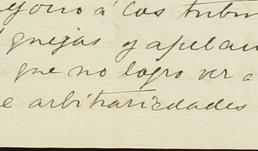 eyono á los tribun
quejas y apelan
que no logro ver a
e arbitrariedades